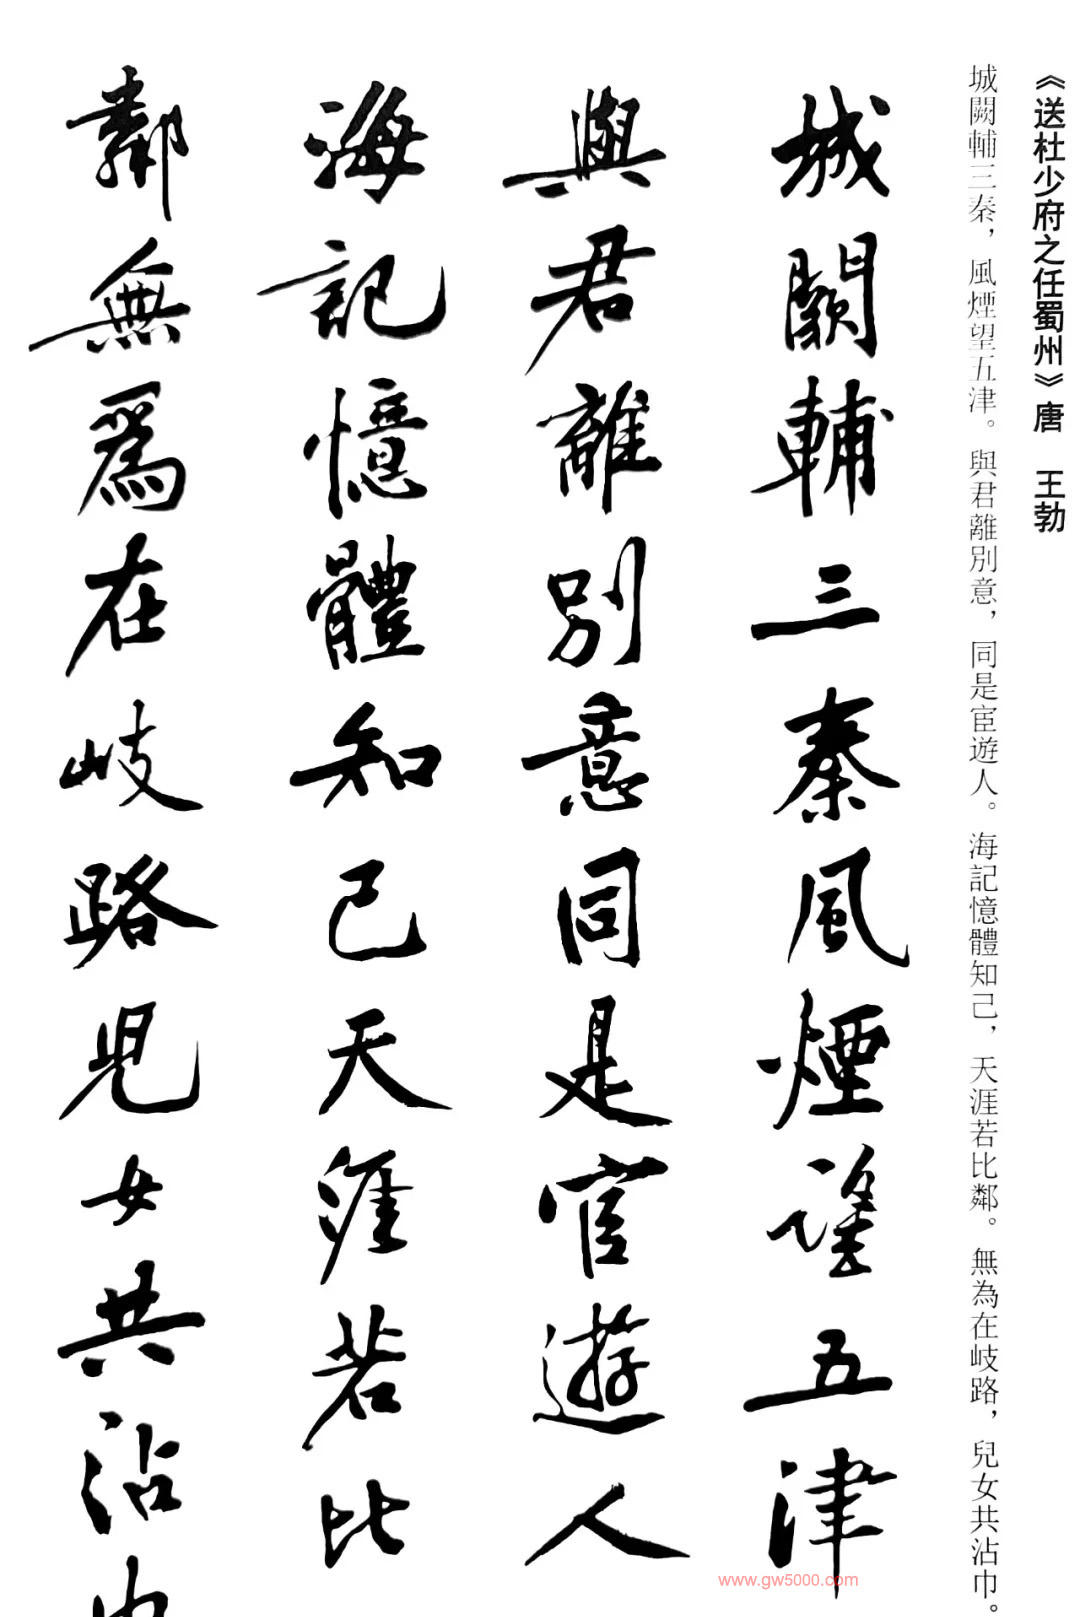 《送杜少府之任蜀州》唐 王勃
城闕輔三秦，風煙望五津。與君離別意，同是宦遊人。海記憶體知己，天涯若比鄰。無為在岐路，兒女共沾巾。
城闕輔三秦風煙望五津
與君離別意同是官遊人
海記憶體知己天涯若比
鄰無爲在岐路兒女共沾
www.gw5000.com